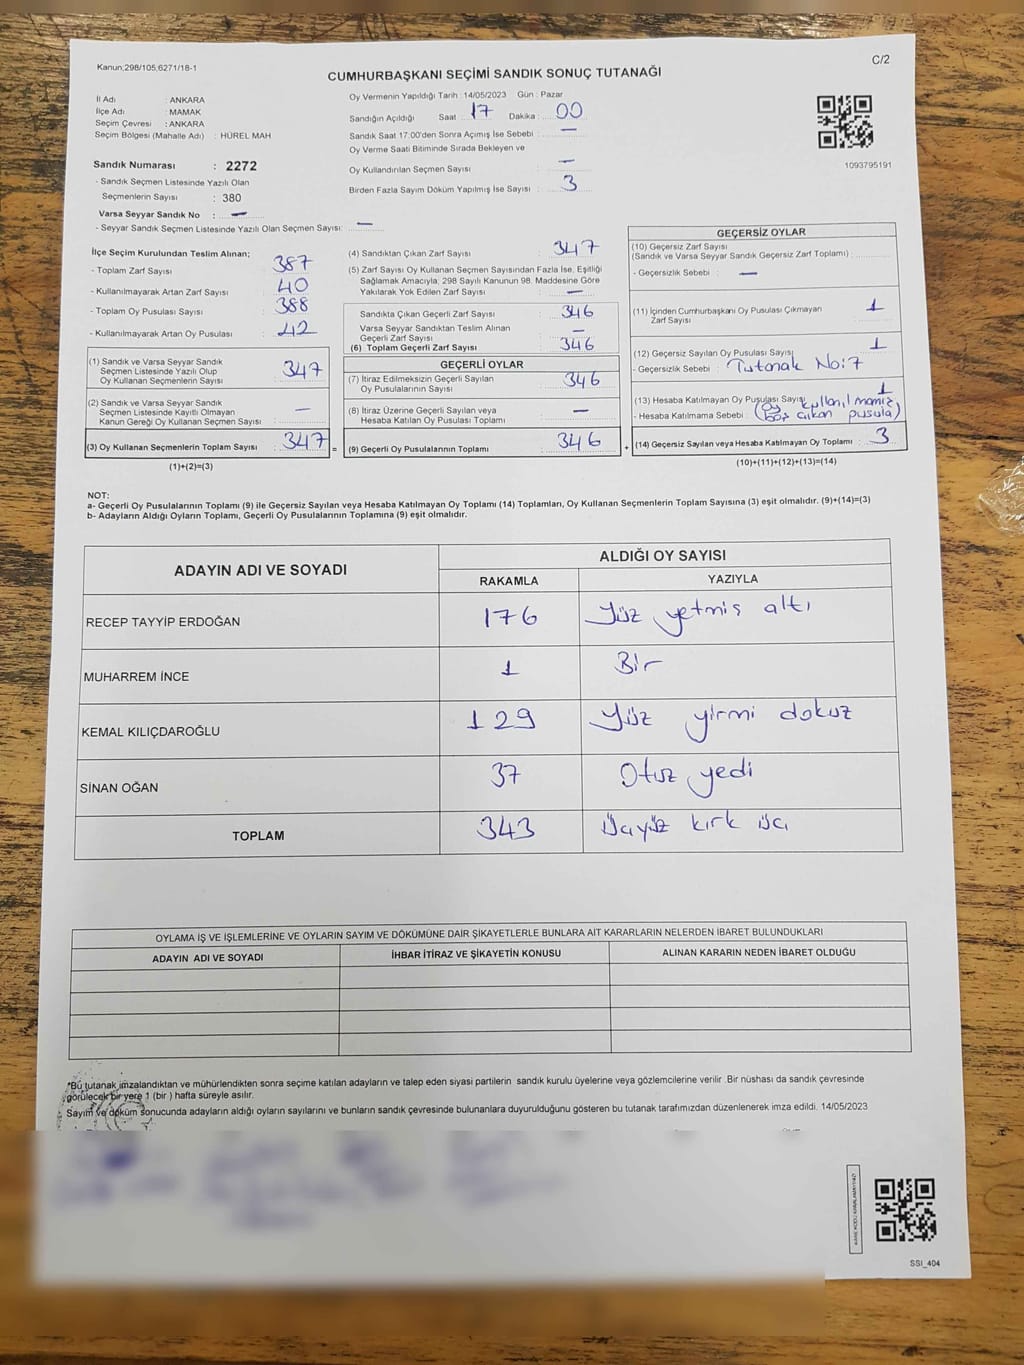 Kanun;298/105;6271/18-1
C/2
CUMHURBAŞKANI SEÇİMİ SANDIK SONUÇ TUTANAĞI
İl Adı : ANKARA
İlçe Adı : MAMAK
Seçim Çevresi : ANKARA
Seçim Bölgesi (Mahalle Adı) : HÜREL MAH
Sandık Numarası : 2272
- Sandık Seçmen Listesinde Yazılı Olan
Seçmenlerin Sayısı : 380
Varsa Seyyar Sandık No : —
- Seyyar Sandık Seçmen Listesinde Yazılı Olan Seçmen Sayısı: —
Oy Vermenin Yapıldığı Tarih :14/05/2023 Gün : Pazar
Sandığın Açıldığı Saat : 17 Dakika : 00
Sandık Saat 17:00'den Sonra Açımış İse Sebebi : —
Oy Verme Saati Bitiminde Sırada Bekleyen ve
Oy Kullandırılan Seçmen Sayısı : —
Birden Fazla Sayım Döküm Yapılmış İse Sayısı : 3
1093795191
İlçe Seçim Kurulundan Teslim Alınan;
- Toplam Zarf Sayısı : 387
- Kullanılmayarak Artan Zarf Sayısı : 40
- Toplam Oy Pusulası Sayısı : 388
- Kullanılmayarak Artan Oy Pusulası : 42
(1) Sandık ve Varsa Seyyar Sandık
Seçmen Listesinde Yazılı Olup
Oy Kullanan Seçmenlerin Sayısı : 347
(2) Sandık ve Varsa Seyyar Sandık
Seçmen Listesinde Kayıtlı Olmayan
Kanun Gereği Oy Kullanan Seçmen Sayısı : —
(3) Oy Kullanan Seçmenlerin Toplam Sayısı : 347 =
(1)+(2)=(3)
(4) Sandıktan Çıkan Zarf Sayısı : 347
(5) Zarf Sayısı Oy Kullanan Seçmen Sayısından Fazla İse, Eşitliği
Sağlamak Amacıyla; 298 Sayılı Kanunun 98. Maddesine Göre
Yakılarak Yok Edilen Zarf Sayısı : —
Sandıkta Çıkan Geçerli Zarf Sayısı : 346
Varsa Seyyar Sandıktan Teslim Alınan
Geçerli Zarf Sayısı : —
(6) Toplam Geçerli Zarf Sayısı : 346
GEÇERLİ OYLAR
(7) İtiraz Edilmeksizin Geçerli Sayılan
Oy Pusulalarının Sayısı : 346
(8) İtiraz Üzerine Geçerli Sayılan veya
Hesaba Katılan Oy Pusulası Toplamı : —
(9) Geçerli Oy Pusulalarının Toplamı : 346 +
GEÇERSİZ OYLAR
(10) Geçersiz Zarf Sayısı
(Sandık ve Varsa Seyyar Sandık Geçersiz Zarf Toplamı) :
- Geçersizlik Sebebi : —
(11) İçinden Cumhurbaşkanı Oy Pusulası Çıkmayan
Zarf Sayısı : 1
(12) Geçersiz Sayılan Oy Pusulası Sayısı : 1
- Geçersizlik Sebebi : Tutanak No:7
(13) Hesaba Katılmayan Oy Pusulası Sayısı : 1
- Hesaba Katılmama Sebebi : (Oy kullanılmamış,
boş çıkan pusula)
(14) Geçersiz Sayılan veya Hesaba Katılmayan Oy Toplamı : 3
(10)+(11)+(12)+(13)=(14)
NOT:
a- Geçerli Oy Pusulalarının Toplamı (9) ile Geçersiz Sayılan veya Hesaba Katılmayan Oy Toplamı (14) Toplamları, Oy Kullanan Seçmenlerin Toplam Sayısına (3) eşit olmalıdır. (9)+(14)=(3)
b- Adayların Aldığı Oyların Toplamı, Geçerli Oy Pusulalarının Toplamına (9) eşit olmalıdır.
ADAYIN ADI VE SOYADI
ALDIĞI OY SAYISI
RAKAMLA YAZIYLA
RECEP TAYYİP ERDOĞAN 176 Yüz yetmiş altı
MUHARREM İNCE 1 Bir
KEMAL KILIÇDAROĞLU 129 Yüz yirmi dokuz
SİNAN OĞAN 37 Otuz yedi
TOPLAM 343 Üçyüz kırk üç
OYLAMA İŞ VE İŞLEMLERİNE VE OYLARIN SAYIM VE DÖKÜMÜNE DAİR ŞİKAYETLERLE BUNLARA AİT KARARLARIN NELERDEN İBARET BULUNDUKLARI
ADAYIN ADI VE SOYADI İHBAR İTİRAZ VE ŞİKAYETİN KONUSU ALINAN KARARIN NEDEN İBARET OLDUĞU
*Bu tutanak imzalandıktan ve mühürlendikten sonra seçime katılan adayların ve talep eden siyasi partilerin sandık kurulu üyelerine veya gözlemcilerine verilir .Bir nüshası da sandık çevresinde
görülecek bir yere 1 (bir ) hafta süreyle asılır.
Sayım ve döküm sonucunda adayların aldığı oyların sayılarını ve bunların sandık çevresinde bulunanlara duyurulduğunu gösteren bu tutanak tarafımızdan düzenlenerek imza edildi. 14/05/2023
SSI_404